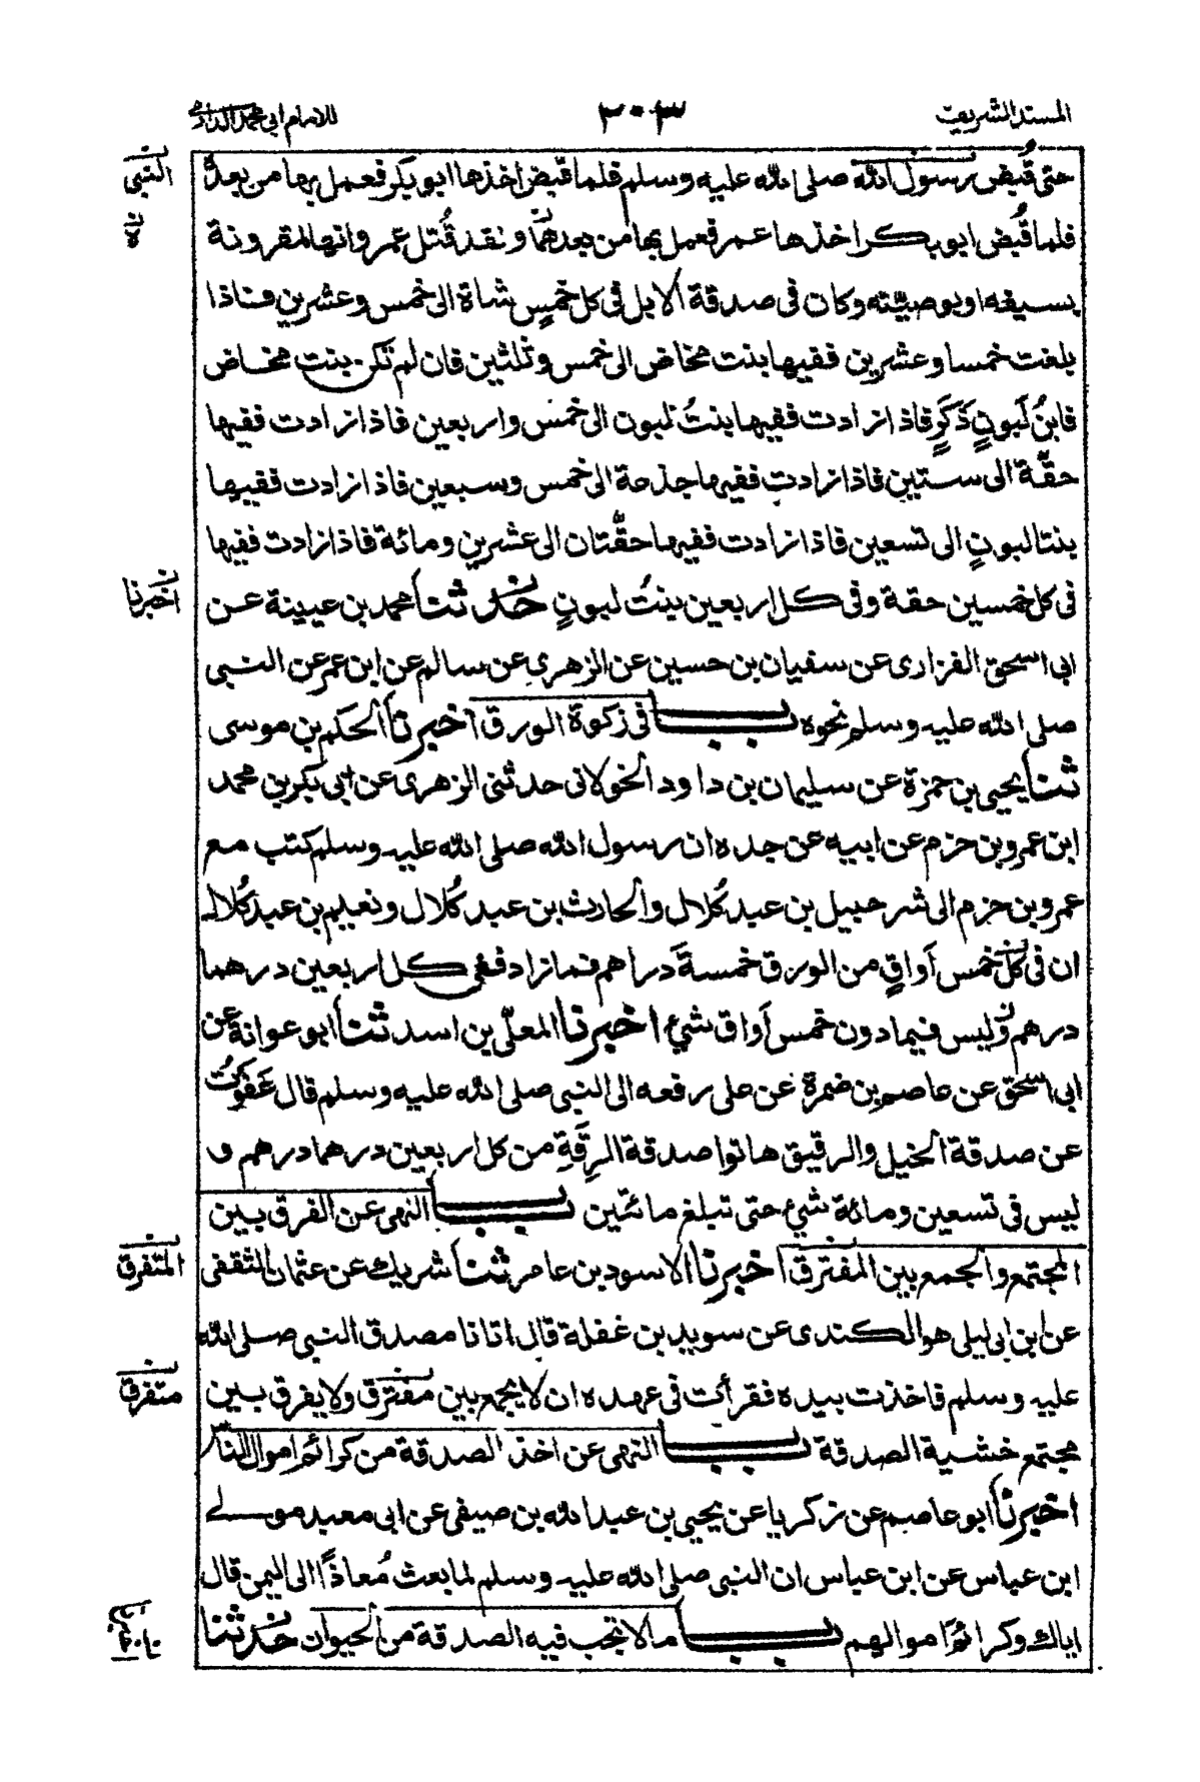 المسند الشريف
٢٠٣
للامام ابي محمد الدارمي
حتى قُبض رسول الله صلى الله عليه وسلم فلما قبض اخذها ابو بكر فعمل بها من بعده
النبي
فلما قُبض ابو بكر اخذها عمر فعمل بها من بعدهما ولقد قُتل عمر وانها لمقرونة
ه
بسيفه او بوصيّته وكان فى صدقة الابل فى كل خمسٍ شاة الى خمس وعشرين فاذا
بلغت خمسا وعشرين ففيها بنت مخاض الى خمس وثلثين فان لم تكن بنت مخاض
فابنُ لَبونٍ ذَكَرٍ فاذا زادت ففيها بنتُ لبون الى خمس واربعين فاذا زادت ففيها
حقّة الى ستين فاذا زادت ففيها جذعة الى خمس وسبعين فاذا زادت ففيها
بنتا لبونٍ الى تسعين فاذا زادت ففيها حقّتان الى عشرين ومائة فاذا زادت ففيها
فى كل خمسين حقة وفى كل اربعين بنتُ لبونٍ حدثنا محمد بن عيينة عن
اخبرنا
ابى اسحق الفزارى عن سفيان بن حسين عن الزهرى عن سالم عن ابن عمر عن النبى
صلى الله عليه وسلم نحوه باب فى زكوة الورق اخبرنا الحكم بن موسى
ثنا يحيى بن حمزة عن سليمان بن داود الخولانى حدثنى الزهرى عن ابى بكر بن محمد
ابن عمرو بن حزم عن ابيه عن جده ان رسول الله صلى الله عليه وسلم كتب مع
عمرو بن حزم الى شرحبيل بن عبد كُلال والحارث بن عبد كُلال ونعيم بن عبد كُلال
ان فى كل خمس اَواقٍ من الورق خمسةَ دراهم فما زاد ففى كل اربعين درهما
درهم وليس فيما دون خمس اَواق شيئ اخبرنا المعلّى بن اسد ثنا ابو عوانة عن
ابى اسحق عن عاصم بن ضمرة عن على رفعه الى النبى صلى الله عليه وسلم قال عَفَوتُ
عن صدقة الخيل والرقيق هاتوا صدقة الرِقَةِ من كل اربعين درهما درهم و
ليس فى تسعين ومائة شيئ حتى تبلغ مائتين باب النهى عن الفرق بين
المجتمع والجمع بين المفترق اخبرنا الاسود بن عامر ثنا شريك عن عثمان الثقفى
المتفرق
عن ابن ابى ليلى هو الكندى عن سويد بن غفلة قال اتانا مصدق النبى صلى الله
عليه وسلم فاخذت بيده فقرأت فى عهده ان لا يجمع بين مفترق ولا يفرق بين
متفرق
مجتمع خشية الصدقة باب النهى عن اخذ الصدقة من كرائم اموال الناس
اخبرنا ابو عاصم عن زكريا عن يحيى بن عبد الله بن صيفى عن ابى معبد مولى
ابن عباس عن ابن عباس ان النبى صلى الله عليه وسلم لما بعث مُعاذًا الى اليمن قال
اياك وكرائم اموالهم باب ما لا تجب فيه الصدقة من الحيوان حدثنا